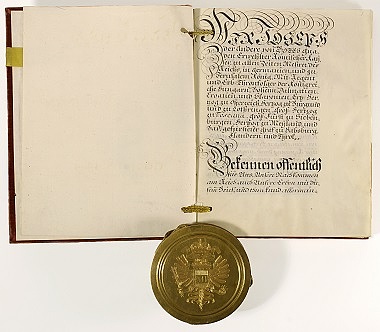 WIR JOSEPH
der Andere von GOTTES gna-
den Erwehlter Römischer Kay-
ser, zu allen Zeiten Mehrer des
Reichs, in Germanien, und zu
Jerusalem König, Mit-Regent
und Erb-Thronfolger der Königrei-
che Hungarn, Böheim, Dalmatien,
Croatien, und Slavonien, Erz-Her-
zog zu Osterreich, Herzog zu Burgund
und zu Lothringen, Groß-Herzog
zu Toscana, Groß-Fürst zu Sieben-
bürgen, Herzog zu Mayland, und
Bar, gefürsteter Graf zu Habspurg,
Flandern, und Tyrol.
Bekennen öffentlich
für Uns, Unsere Nachkommen
am Reich, und Unsere Erben, und
und thun kund